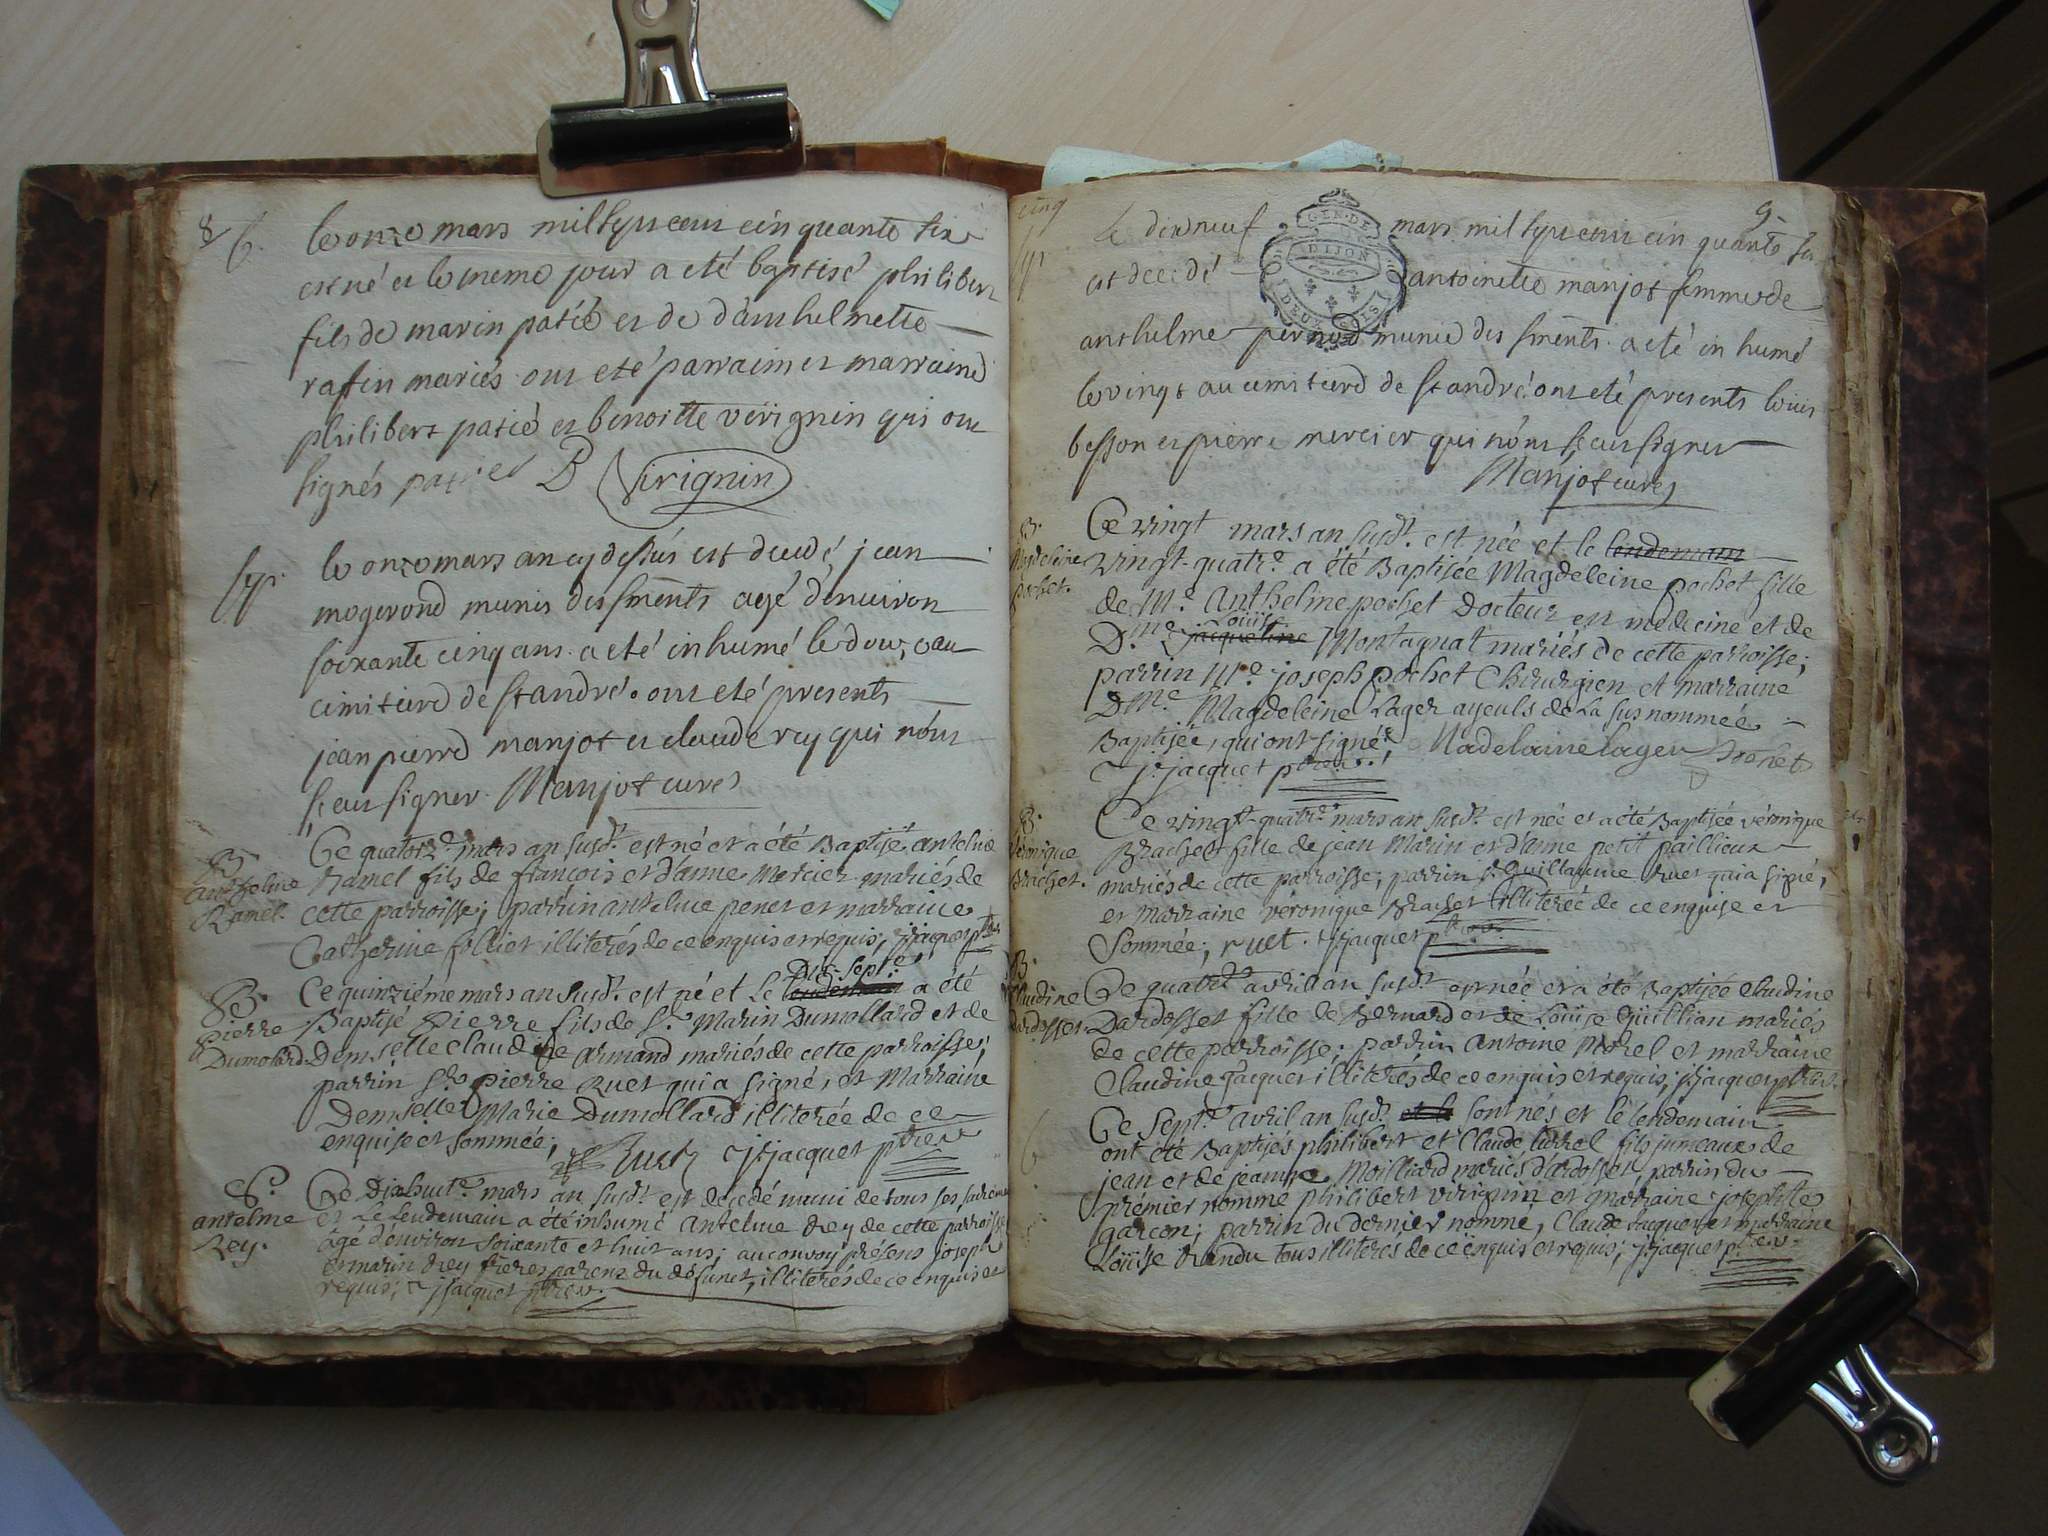 8
b. le onze mars mil sept cent cinquante six
est né et le meme jour a eté baptisé philibert
fils de marin patié et de d'anthelmette
raffin mariés ont eté parrain et marraine
philibert patié et benoitte virignin qui ont
signés patiet B Virignin
sep. le onze mars an cy dessus est decedé jean
mogerond munis des sments agé d'environ
soixante cinq ans a eté inhumé le douze au
cimitierd de st andré ont eté presents
jean pierre manjot et claude rey qui n'ont
sceut signer Manjot curé
B.
anthelme
Ramel.
Ce quatorz.e mars an susd.t est né et a été Baptisé antelme
Ramel fils de francois et d'anne Mercier mariés de
cette parroisse; parrin antelme penet et marraine
Catherine follier illiterés de ce enquis et requis; jacquet ptre
B.
pierre
Dumolard.
Ce quinziéme mars an susd.t est né et le lendemain Dix-sept.e a été
Baptisé pierre fils de S.r Marin Dumollard et de
Demselle claudine armand mariés de cette parroisse;
parrin S.r pierre Ruet qui a signé, et Marraine
Demselle Marie Dumollard illiterée de ce
enquise et sommée; Ruet jacquet ptre
S.
antelme
Rey.
Ce Dixhuit.e mars an susd.t est decedé muni de tous ses sacremens
et Le Lendemain a été inhumé antelme Rey de cette parroisse
agé d'environ soixante et huit ans; au convoy présens joseph
et marin Rey freres parens du défunct, illiterés de ce enquis et
requis; jacquet ptre
cinq
9.
sep. le dixneuf mars mil sept cent cinquante six
GEN. DE
DIJON
DEUX SOLS
est decedé antoinette manjot femme de
anthelme pernod munie des sments a eté in humé
le vingt au cimitierd de st andré ont eté presents louis
besson et pierre mercier qui n'ont sceut signer
Manjot curé
B.
Magdeleine
pochet.
Ce vingt mars an susd.t est née et le lendemain
vingt-quatr.e a été Baptisée Magdeleine pochet fille
de M.e Anthelme pochet Docteur en medecine et de
D.me jacqueline Louise Montagnat mariés de cette parroisse;
parrin M.e joseph pochet Chirurgien et marraine
D.me Magdeleine Lager ayeuls de La sus nommée
Baptisée, qui ont signé. Madelaine lager pochet
jacquet ptre
B.
Véronique
Brachet.
Ce vingt-quatr.e mars an susd.t est née et a été Baptisée véronique
Brachet fille de jean Marin et d'anne petit paillieux
mariés de cette parroisse; parrin s.r Guillaume Ruet qui a signé,
et Marraine véronique Brachet illiterée de ce enquise et
Sommée; ruet. jacquet ptre
B.
Claudine
Dardosset.
Ce quatr.e avril an susd.t est née et a été Baptisée Claudine
Dardosset fille de Bernard et de Loüise Guillian mariés
de cette parroisse; parrin Antoine Morel et marraine
Claudine Jacquet illiterés de ce enquis et requis; jacquet ptre
b Ce Sept.e avril an susd.t et le sont nés et le lendemain
ont été Baptisés philibert et Claude fils jumeaux de
jean et de jeanne Moilliard mariés d'ardosset, parrin du
prémier nommé philibert virignin et marraine josephte
garcon; parrin du dernier nommé, Claude jaquet et marraine
Loüise Randu tous illiterés de ce enquis et requis; jacquet ptre